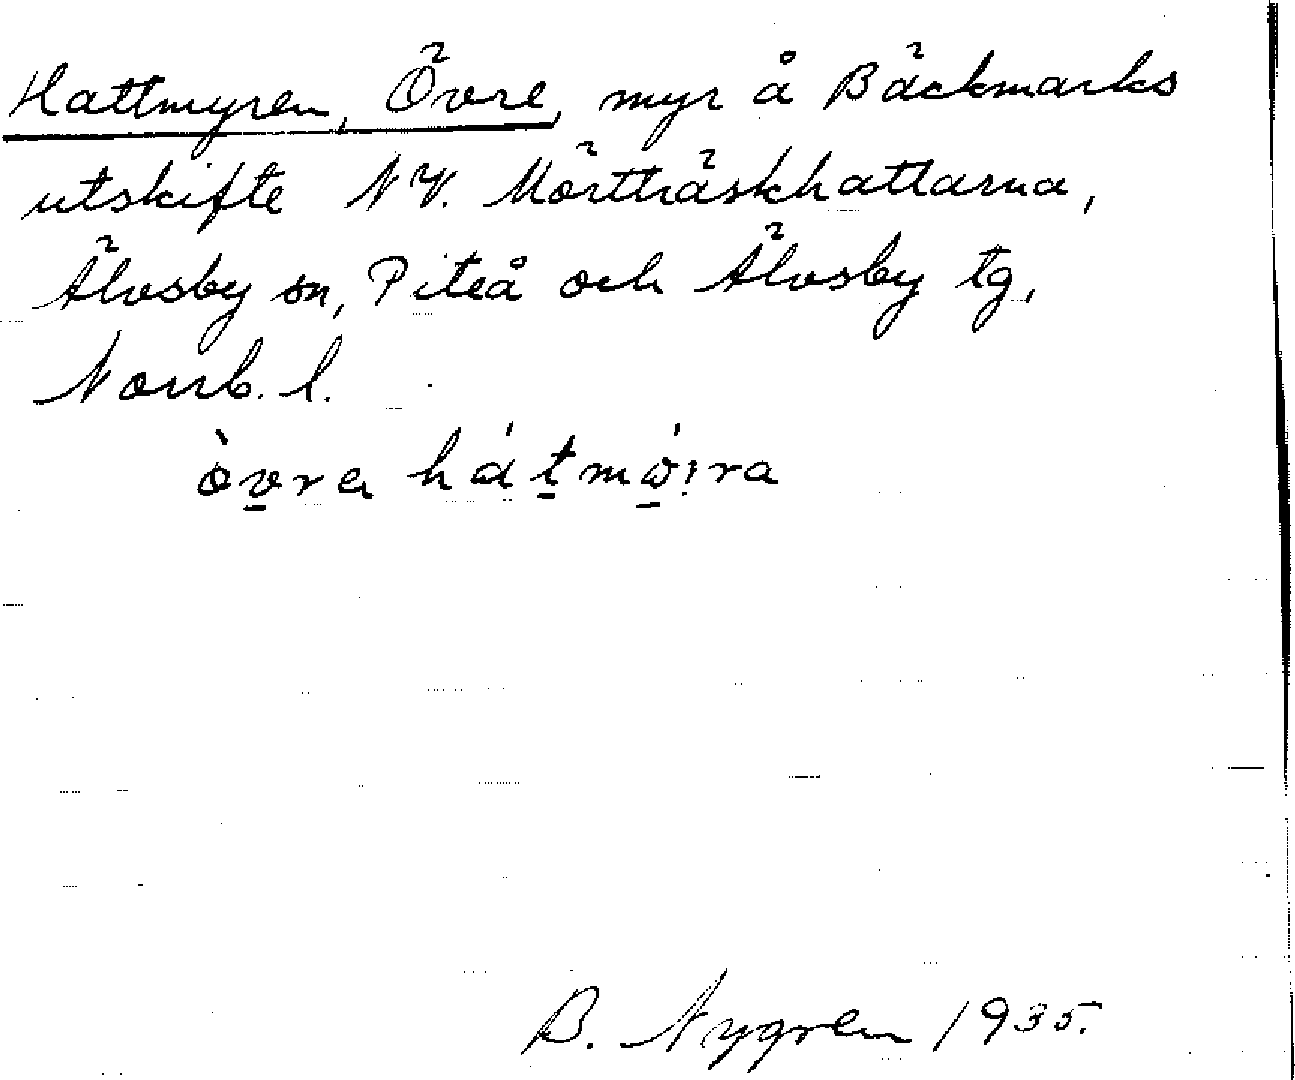 Hattmyren, Övre, myr å Bäckmarks
utskifte NV. Mörtträskhattarna,
Älvsby sn, Piteå och Älvsby tg,
Norrb. l.
òvra hátmó̱i̯ra
B. Nygren 1935.